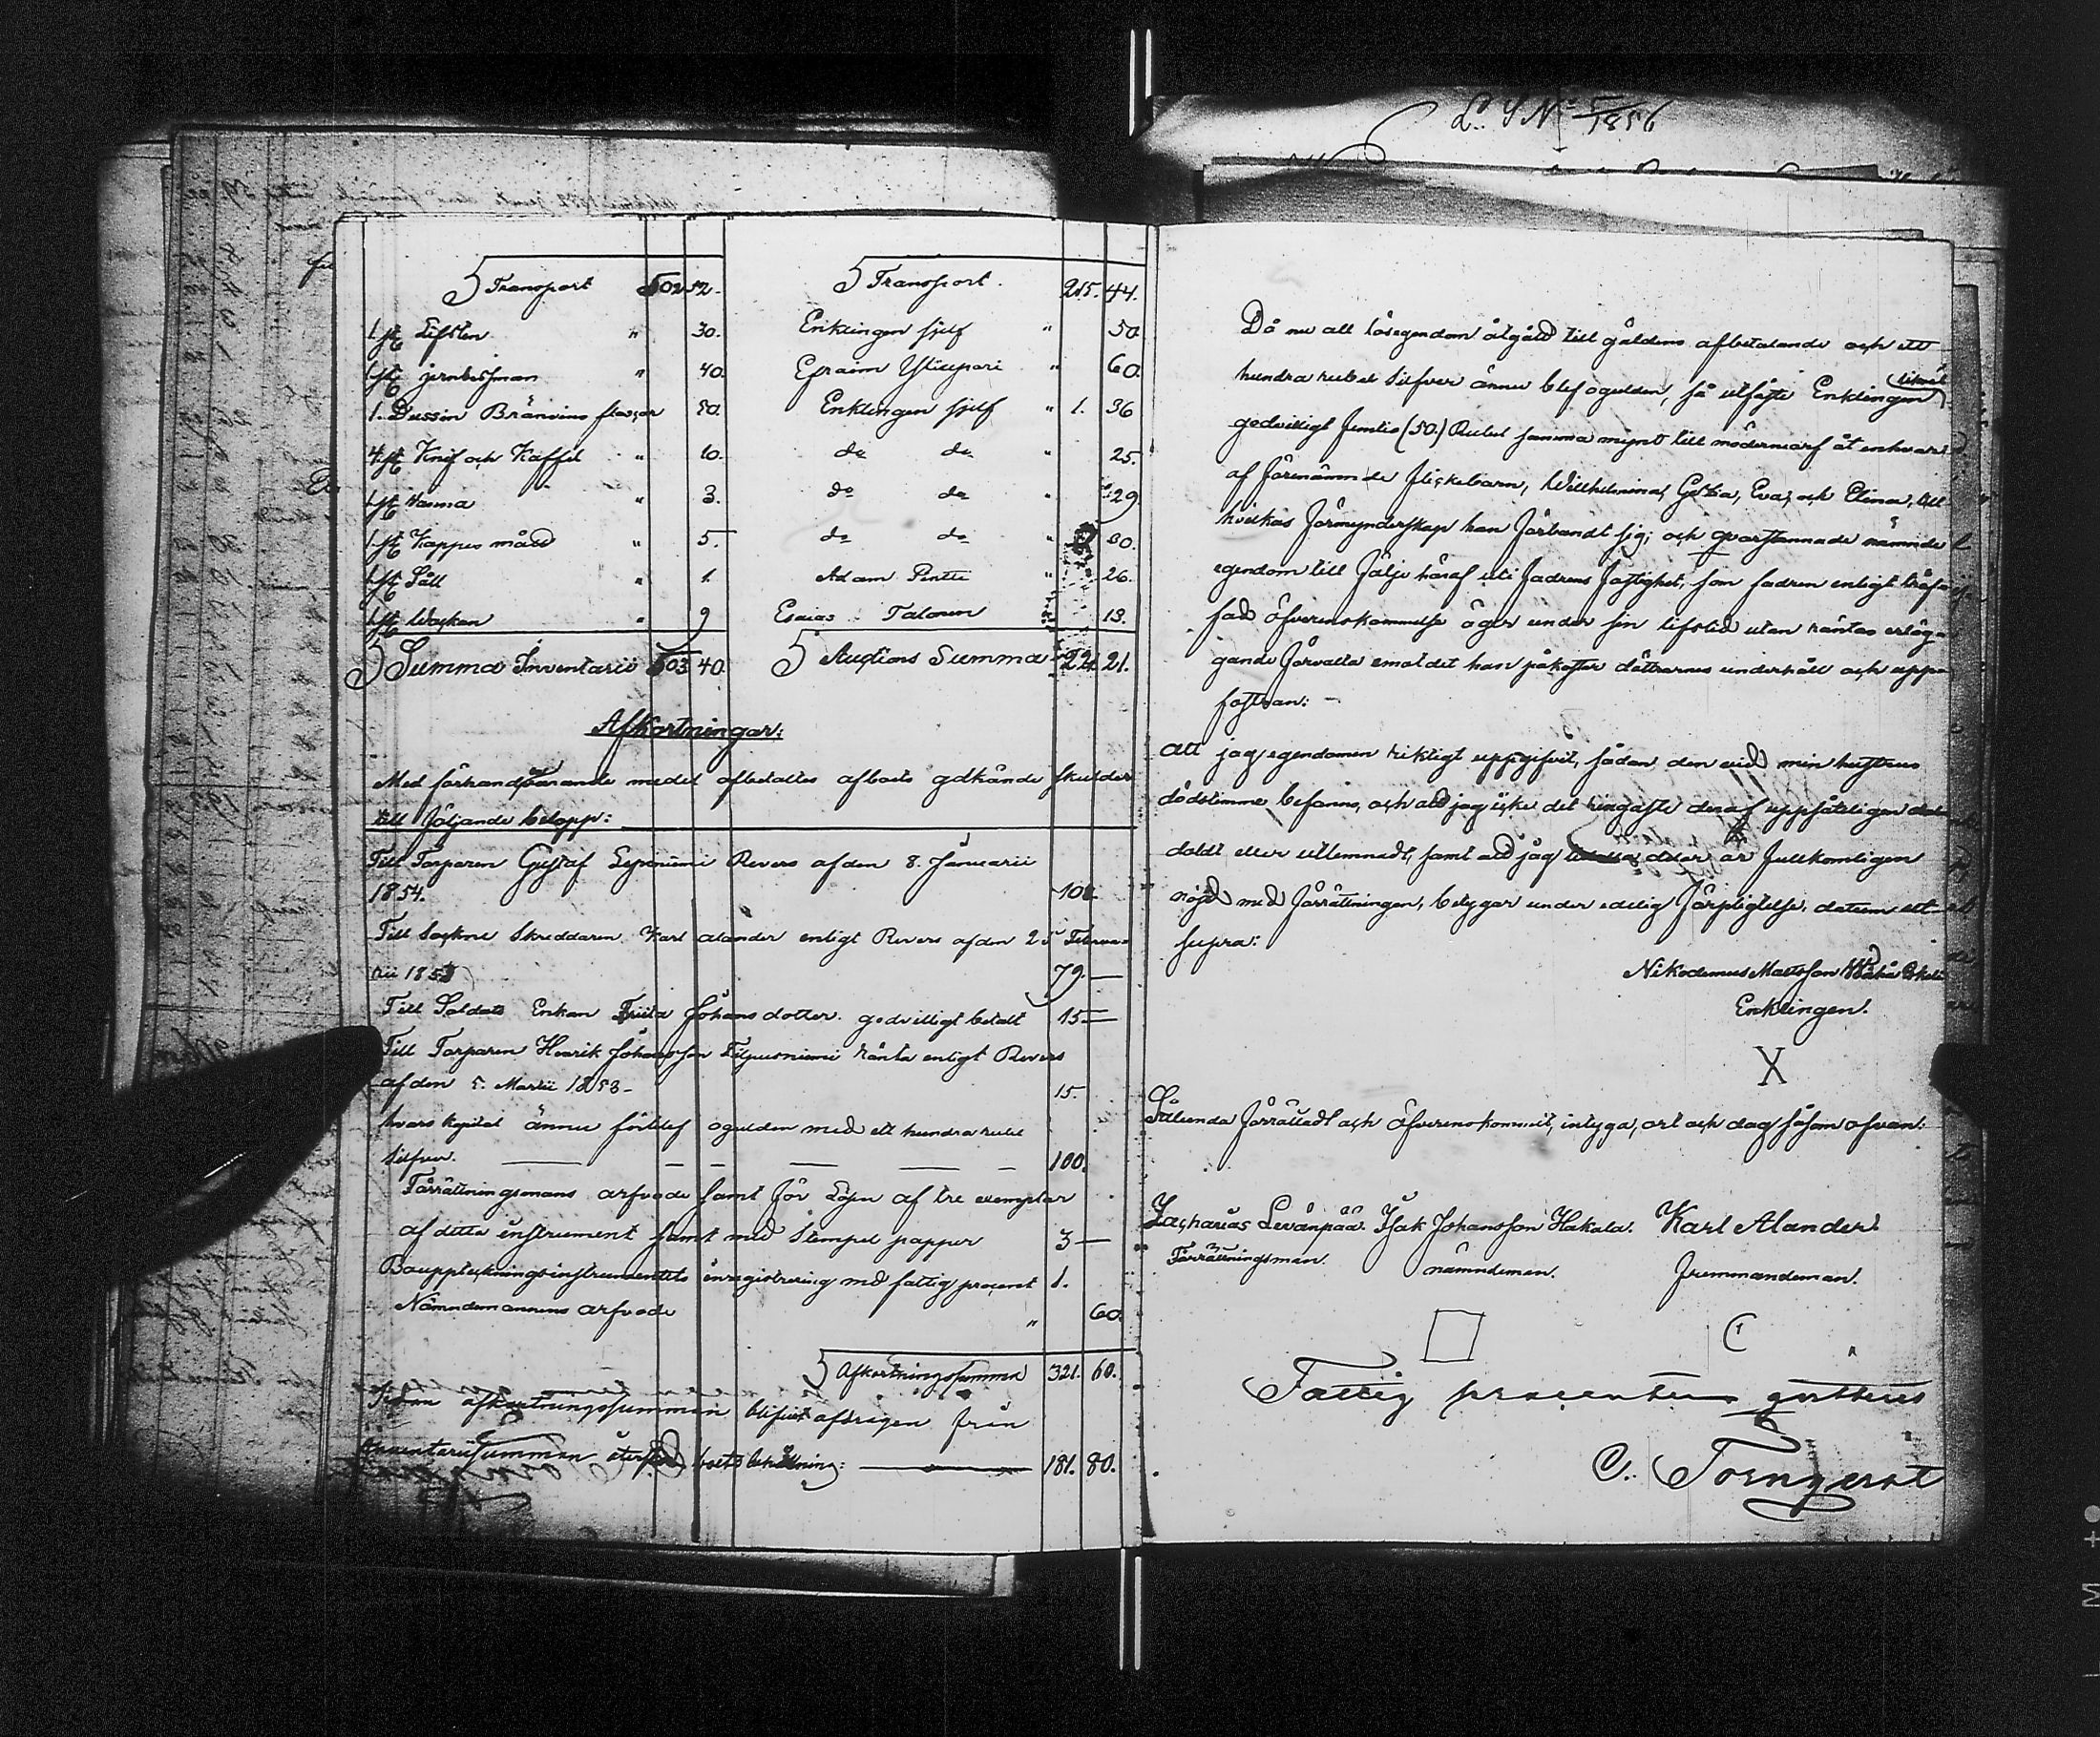 L. S N° 5/1856
Transport 502 52.
Transport. 215. 44.
1 st Lifsten " 30. Enklingen sjelf " 50.
1 st jernbessman " 40. Efraim Ylisipari " 60.
1. Dussin Bränvins flaskor 50. Enklingen sjelf " 1. 36
4 st Knif och Kaffel " 10. do do " 25.
1 st " 3. do do " 29.
1 st Kappes mått " 5. do do " 30.
1 st Såll " 1. Adam Pentti " 26.
1 st " 9 Esaias Talonen 13.
Summa Inventarii 503 40. Auctions Summa 221 21.
Afkortningar:
Med förhandvarande medel afbetaltes afboets gdkände skulder
till följande belopp:
Till Torparen Gustaf Revers af den 8. Januarii
1854. 108.
Till Sockne Skreddaren Karl Alander enligt Revers af den 25 Februa-
rii 79. —
Till Soldats Enkan Johansdotter godvilligt betalt 15 —
Till Torparen Henrik Johansson Filpusniemi ränta enligt Revers
af den 5. Martii 1853 — 15.
hvars kapital ännu förblef ogulden med ett hundra rubel
silfver. — — — — — — 100.
Förrättningsmans arfvode samt för Lösen af tre exemplar
af detta instrument samt med Stempel papper 3 —
Bouppteckningsinstrumentets inregistrering med fattig procent 1.
Nämndemannens arfvode " 60.
Afkortningssumma 321. 60.
Sedan afkortningssumman blifvit afdragen från
Inventariisumman återstod boets behållning: — 181. 80.
Då nu all lösegendom åtgått till gäldens afbetalande och ett
hundra rubel Silfver ännu blef ogulden, så utfäste Enklingen likväl
godvilligt femtio (50.) Rubel samma mynt till mödernearf åt enhvar
af förenämnde flickebarn, Willhelmina, Eva, och Elina, till
hvilkas förmynderskap han förbandt sig; och qvarstannade nämnde
egendom till följe häraf uti fadrens fastighet, som fadren enligt träf-
fad öfverenskommelse äger under sin lifstid utan räntas erläg-
gande förvalta emot det han påkostar döttrarnes underhåll och upp-
fostran: —
Att jag egendomen riktigt uppgifvit, sådan den vid min hustrus
dödstimme befanns, och att jag icke det ringaste deraf uppsåteligen
doldt eller utlemnadt, samt att jag är fullkomligen
nöjd med förrättningen, betygar under edelig förpligtelse, datum ut
supra:
Nikodemus Mattsson
Enklingen.
X
Sålunda förrättadt och öfverenskommit, intyga, ort och dag såsom ofvan:
Zacharias Levänpää. Isak Johansson Hakala. Karl Alander.
Förrättningsman. nämndeman. fremmandeman.
Fattig procenten qvitteras
C. Törnqvist